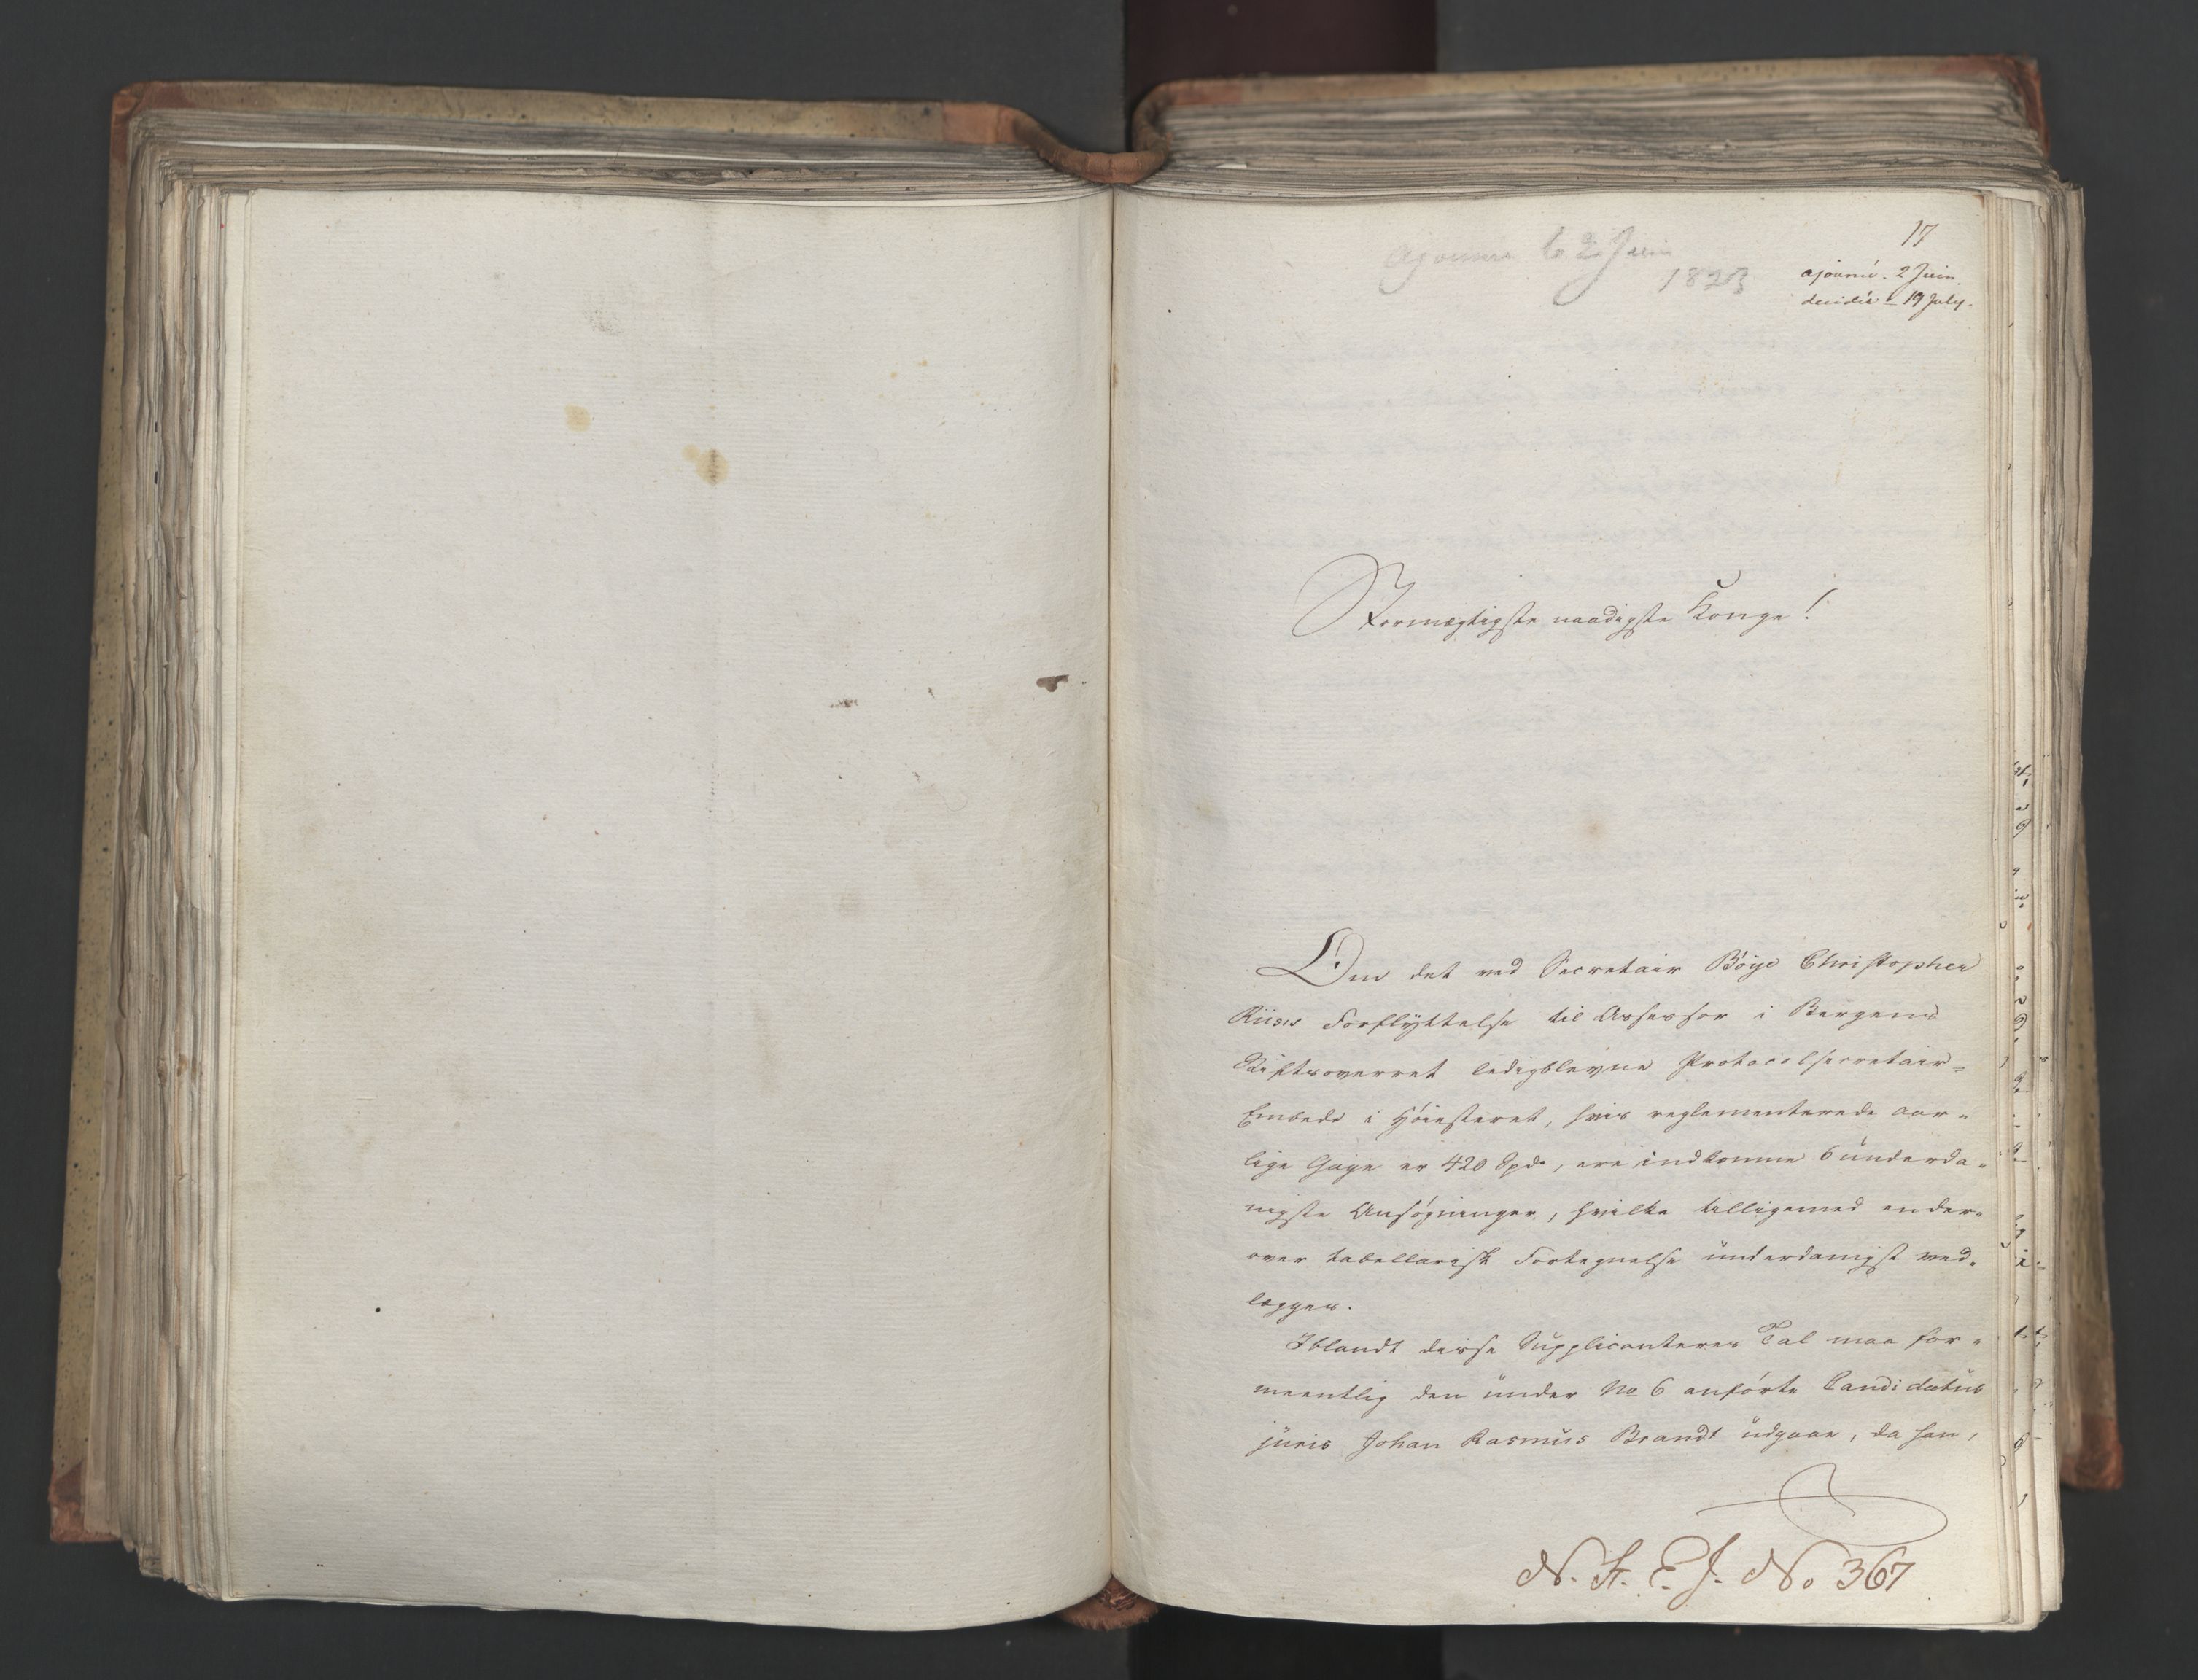 17
ajourné le 2 Juin
1823
ajourné. 2 Juin.
decidée - 19 July.
Stormægtigste naadigste Konge!
Om det ved Secretair Böye Christopher
Riises Forflyttelse til Assessor i Bergens
Stiftsoverret ledigblevne Protocolsecretair-
Embede i Höiesteret, hvis reglementerede aar-
lige Gage er 420 Spd, ere indkomne 6 underda-
nigste Ansögninger, hvilke tilligemed en der-
over tabellarisk Fortegnelse underdanigst ved-
lægges.
Iblandt disse Supplicanteres Tal maa for-
meentlig den under No 6 anförte Candidatus
juris Johan Rasmus Brandt udgaae, da han,
N. St. E. J. No 367